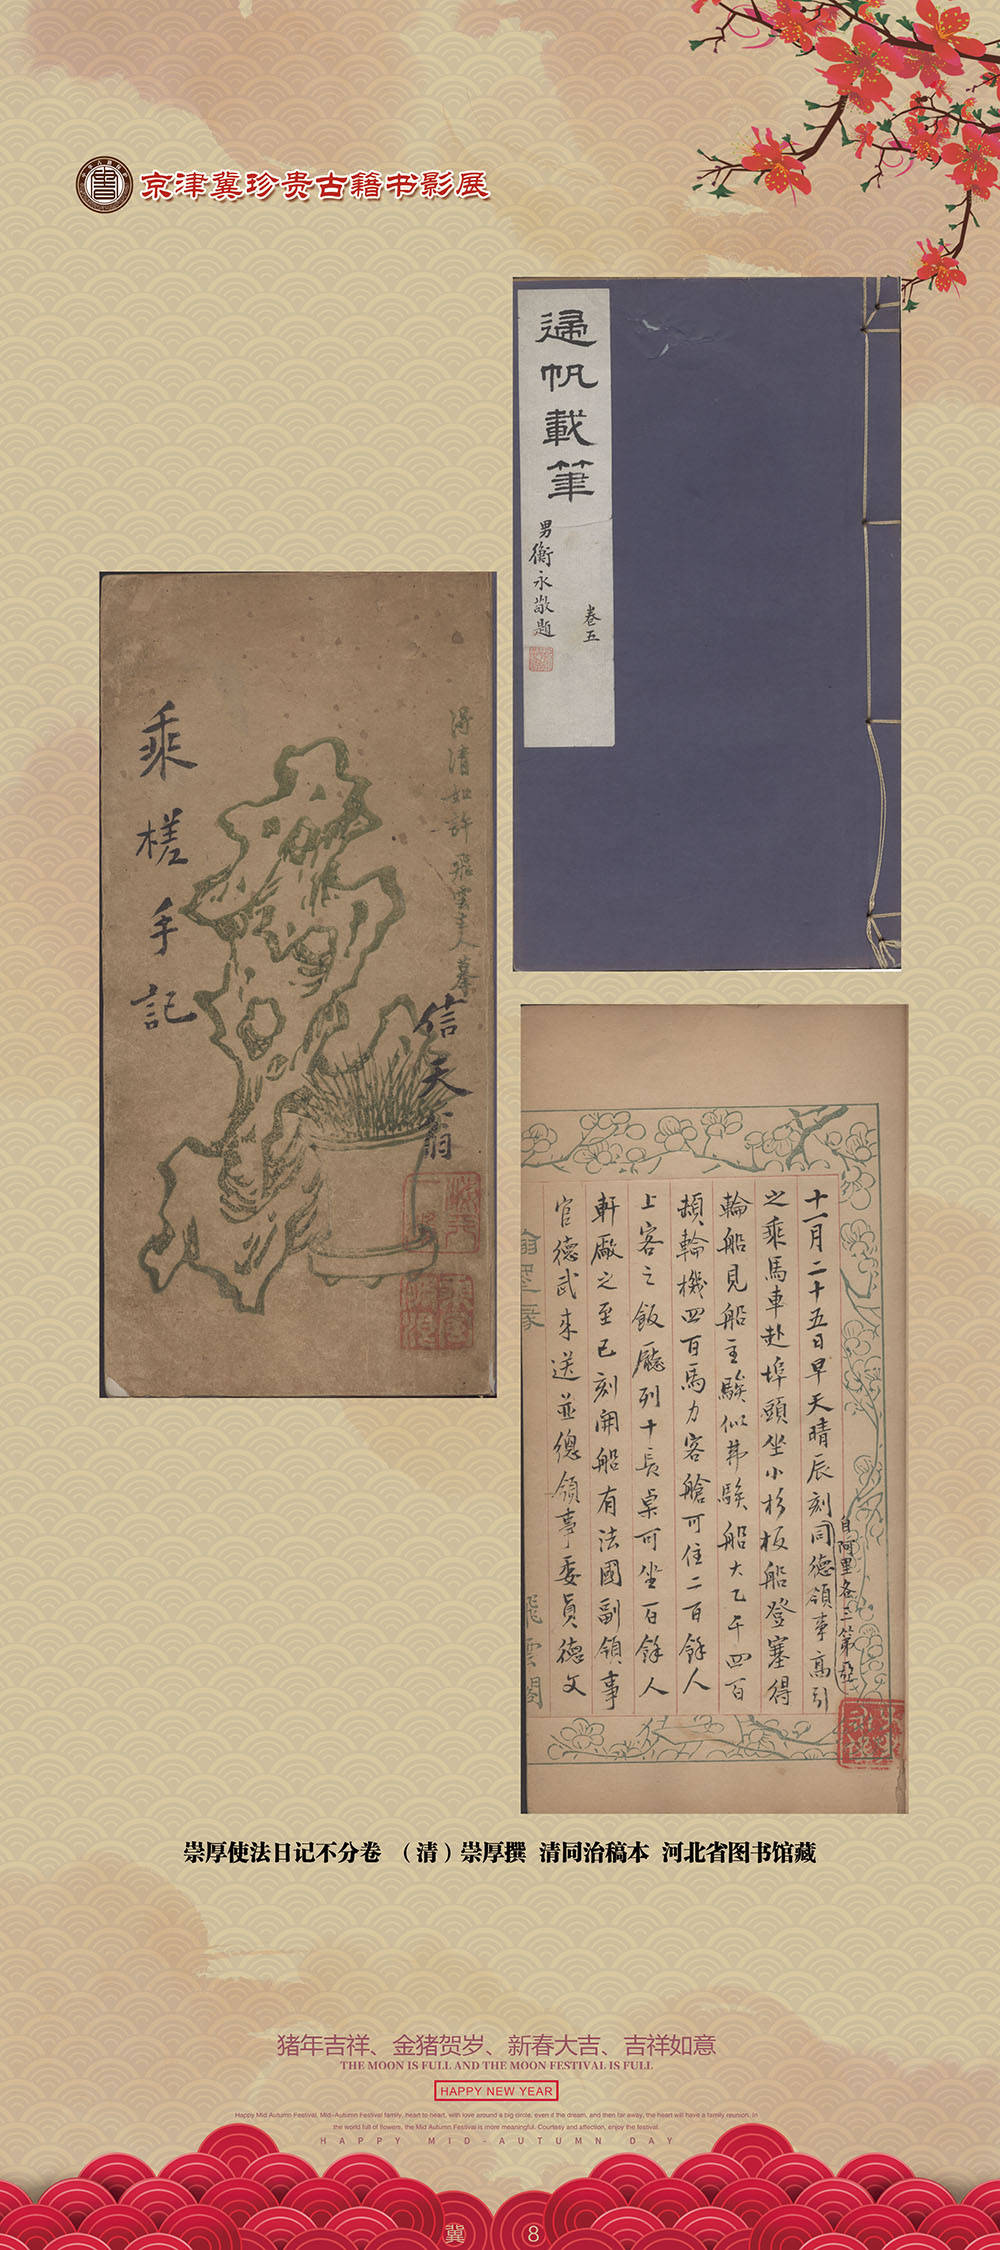 京津冀珍贵古籍书影展
归帆載筆
男衡永敬題
卷五
乘槎手記
信天翁
十一月二十五日早天晴辰刻同德領事高引
自阿里各三第亞
之乘馬車赴埠頭坐小杉板船登塞得
輪船見船主駿似弗駿船大乙千四百
輪機四百馬力客艙可住二百餘人
上客之飯廳列十長桌可坐百餘人
軒廠之至已刻開船有法國副領事
官德武來送並總領事委員德文
飛雲閣
崇厚使法日记不分卷 （清）崇厚撰 清同治稿本 河北省图书馆藏
猪年吉祥、金猪贺岁、新春大吉、吉祥如意
THE MOON IS FULL AND THE MOON FESTIVAL IS FULL
HAPPY NEW YEAR
Happy Mid Autumn Festival, Mid-Autumn Festival family, heart to heart, with love around a big circle, even if the dream, and then far away, the heart will have a family reunion. In
the world full of flowers, the Mid Autumn Festival is more meaningful. Courtesy and affection, enjoy the festival.
HAPPY MID-AUTUMN DAY
冀
8